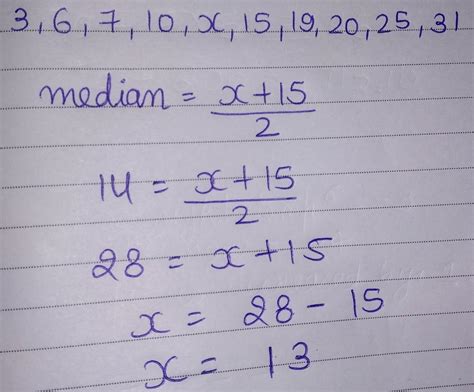 3, 6, 7, 10, x, 15, 19, 20, 25, 31
median = x+15/2
14 = x+15/2
28 = x+15
x = 28 - 15
x = 13